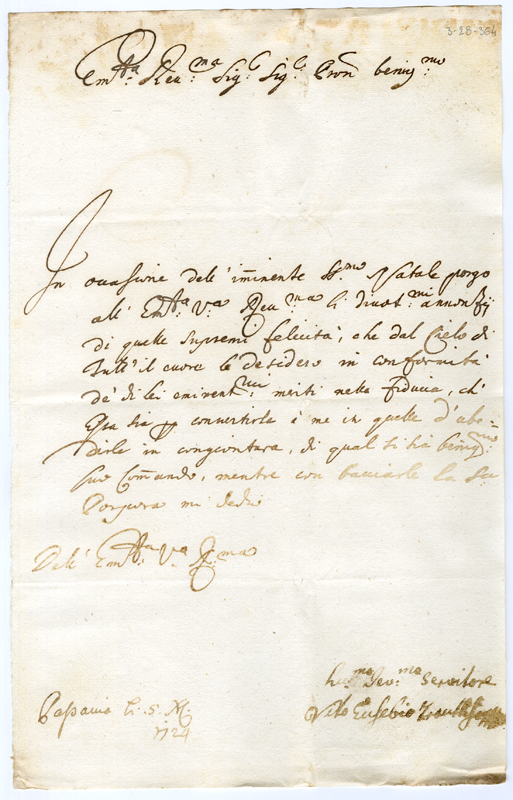 3-28-364
Em.ta Reu.ma Sig.r Sig.r Pron benig.mo
In ouasione dell' iminente SS.mo Natale porgo
all' Em.ta V.a Reu.ma li diuot.mi annonzij
di quelle supreme felicità, che dal Cielo di
tutt' il cuore le desidero in conformità
de' di lei eminent.mi meriti nella fiducia, ch'
Essa sia p convertirle à me in quelle d' ube=
dirle in congiontura, di qual si sia benig.mo
suo Comando, mentre con bacciarle la Sa
Porpora mi dedio
Dell' Em.ta V.a R.ma
hu.mo Deu.mo Servitore
Vito Eusebio
Passavia li. 5. X.
1724